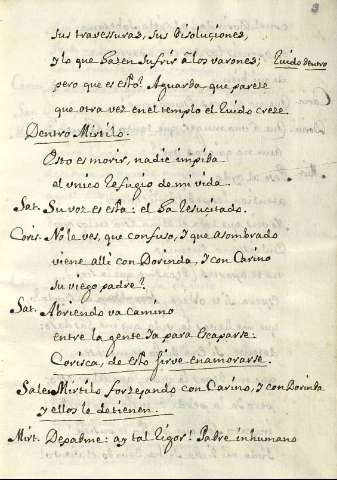 sus travessuras, sus disoluciones,
y lo que hazen sufrir â los varones; Ruido dentro
pero que es esto? Aguarda que pareze
que otra vez en el templo el Ruido creze.
Dentro Mirtilo.
Esto es morir, nadie impida
el unico Refugio de mi vida.
Sat. Su voz es esta: el ha Resucitado.
Coris. No le ves, que confuso, y que asombrado
viene alli con Dorinda, y con Carino
su viego padre?
Sat. Abriendo va camino
entre la gente Ya para Escaparse:
Corisca, de esto sirve enamorarse.
Sale Mirtilo forzejando con Carino, y con Dorinda
y ellos le detienen.
Mirt. Dejadme: ay tal Rigor! Padre inhumano